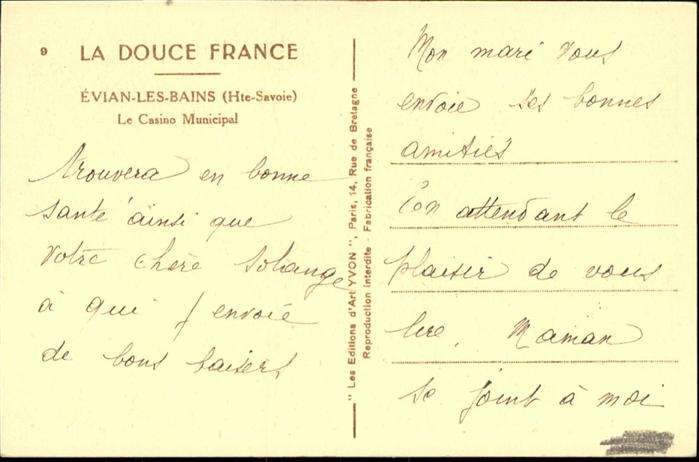 9
LA DOUCE FRANCE
ÉVIAN-LES-BAINS (Hte-Savoie)
Le Casino Municipal
trouvera en bonne
santé ainsi que
votre chère Solange
à qui j envoie
de bons baisers
" Les Editions d'Art YVON ", Paris, 14, Rue de Bretagne
Reproduction interdite - Fabrication française
Mon mari vous
envoie ses bonnes
amitiés
En attendant le
plaisir de vous
lire. Maman
se joint à moi